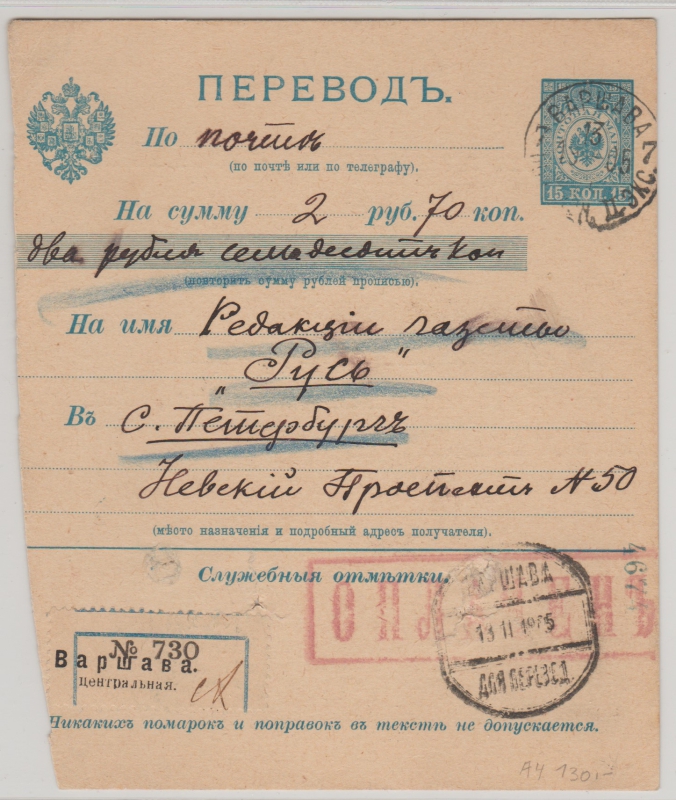 ПЕРЕВОДЪ.
По почтѣ
(по почтѣ или по телеграфу).
15 КОП. 15
ВАРШАВА
13
На сумму 2 руб. 70 коп.
два рубля семьдесятъ коп
(повторить сумму рублей прописью).
На имя Редакціи газеты
„Русь"
Въ С. Петербургъ
Невскій Проспектъ N 50
(мѣсто назначенія и подробный адресъ получателя).
Служебныя отмѣтки.
ВАРШАВА
13 II 1905
ДЛЯ ПЕРЕВОД.
№ 730
Варшава.
центральная.
Никакихъ помарокъ и поправокъ въ текстѣ не допускается.
A4 130,-